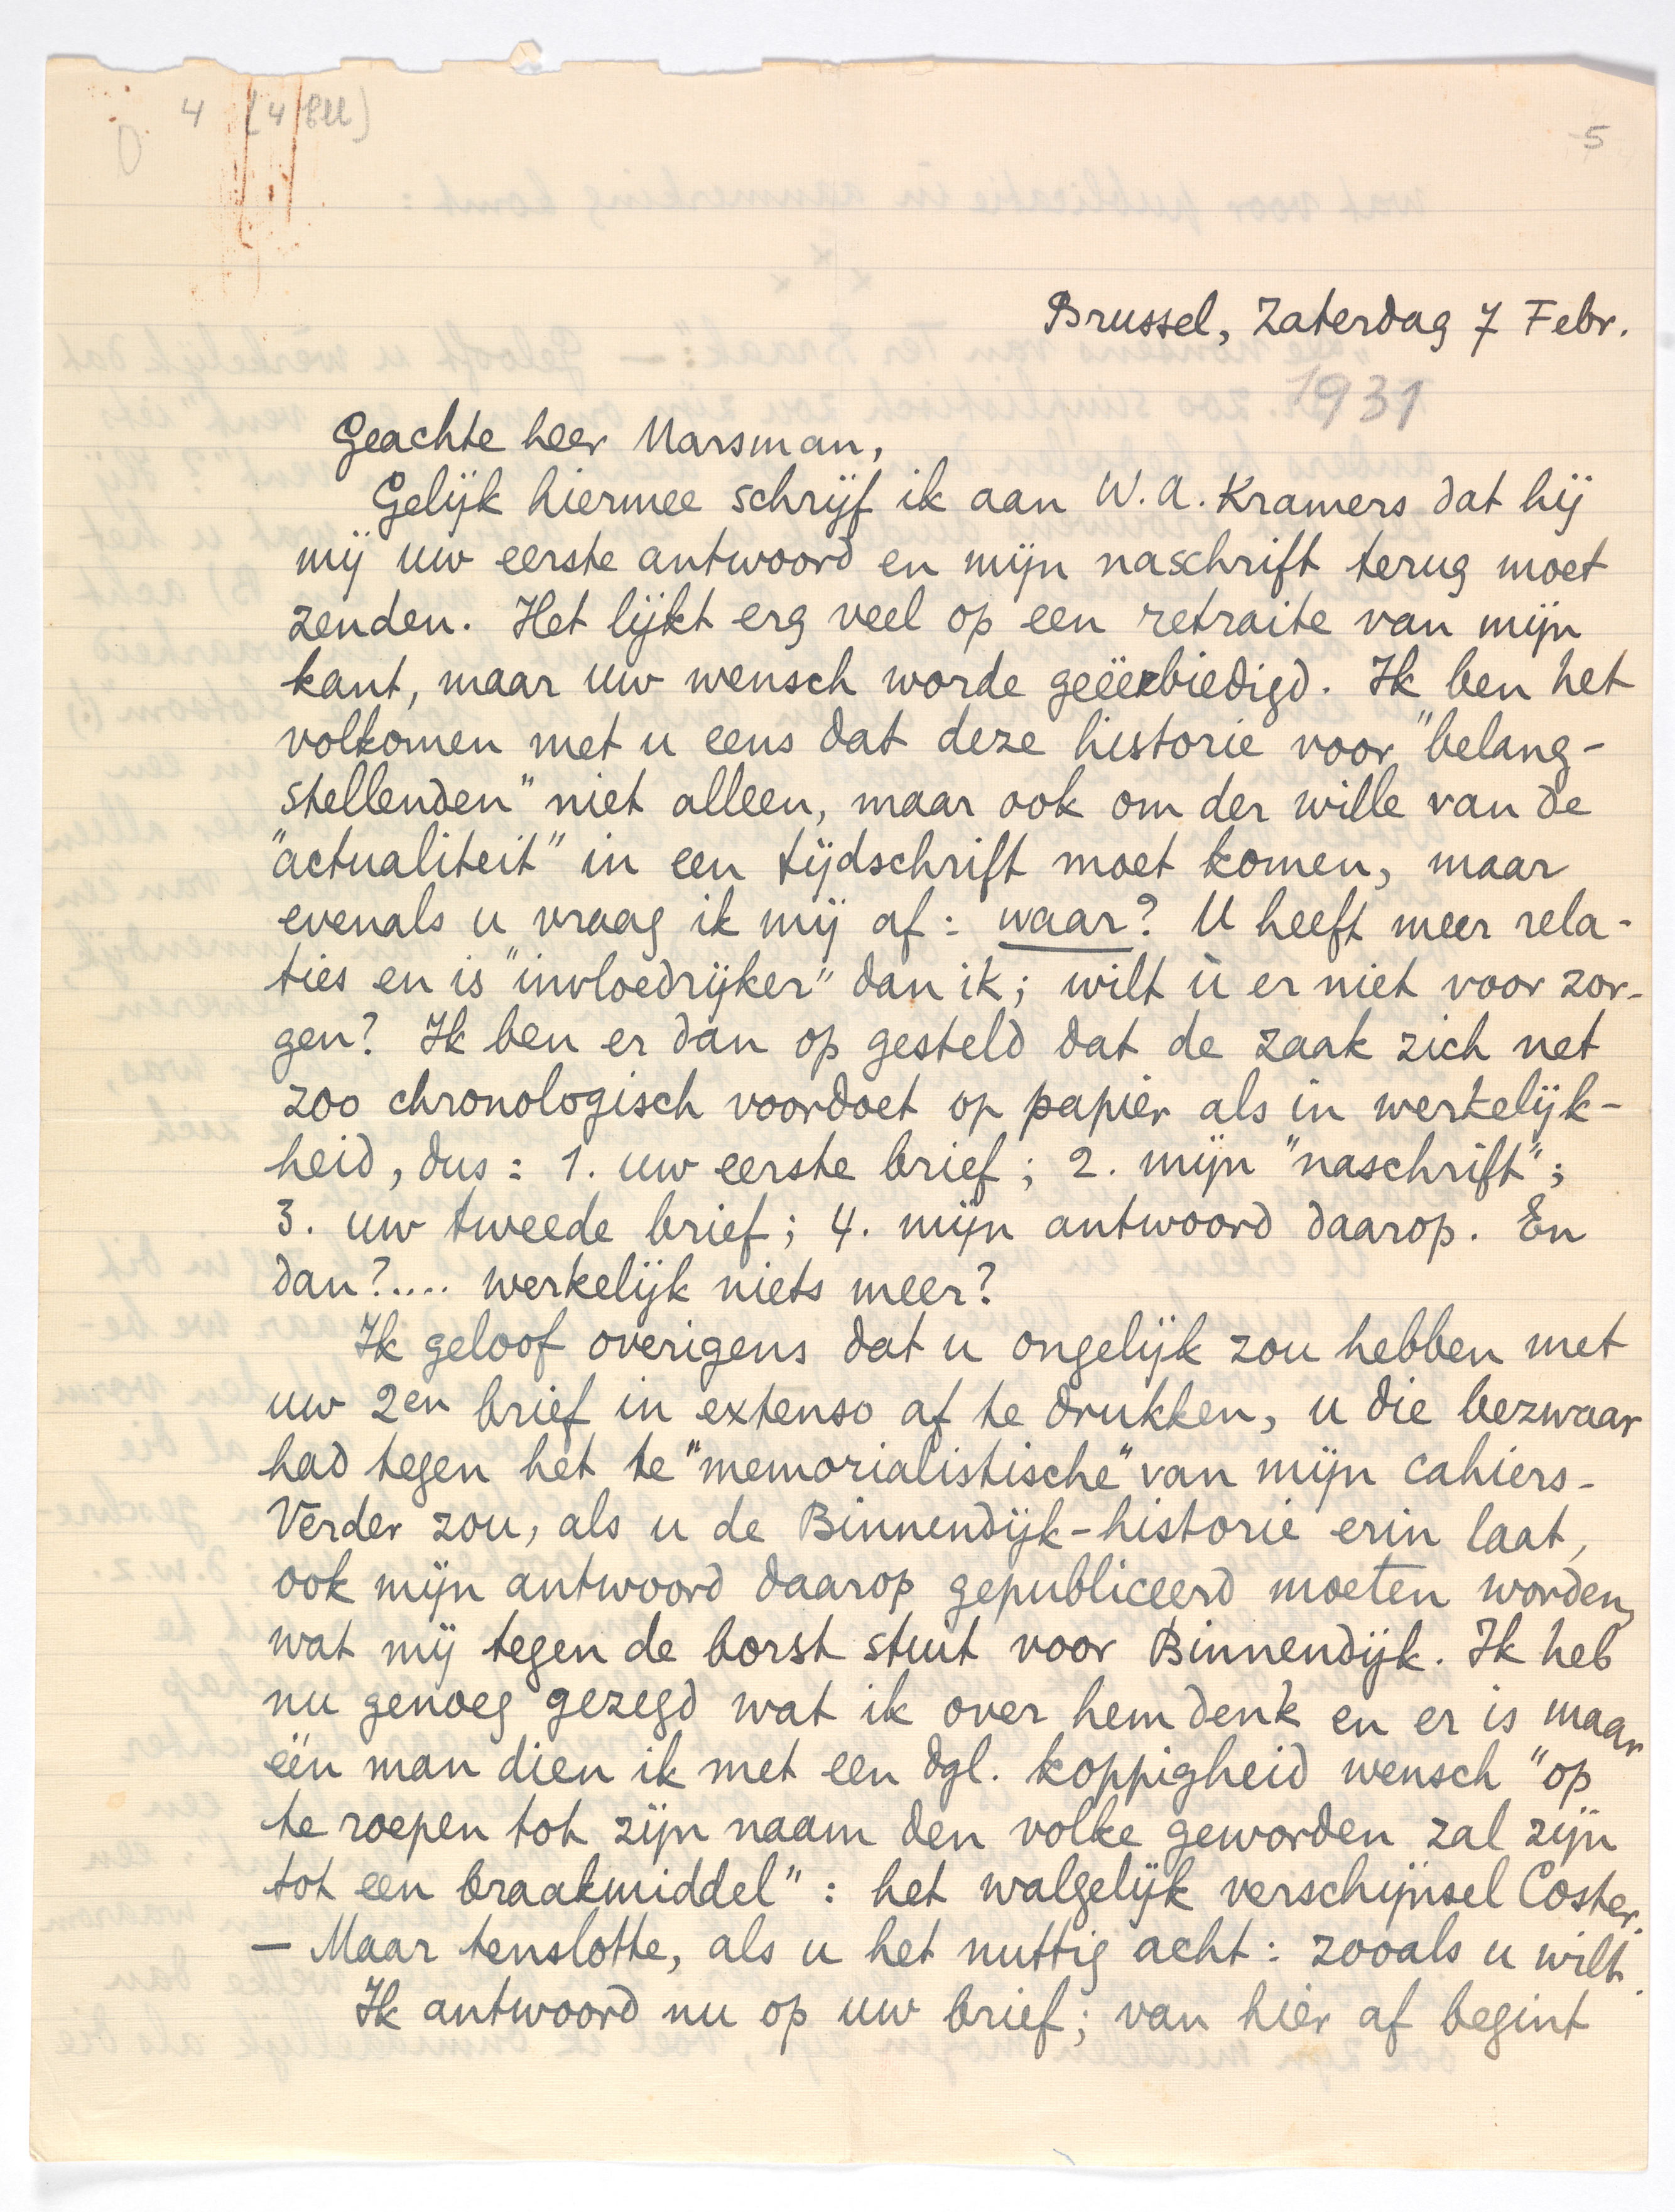 4 [4/EU]
5
Brussel, Zaterdag 7 Febr.
1931
Geachte heer Marsman,
Gelijk hiermee schrijf ik aan W.A. Kramers dat hij
mij uw eerste antwoord en mijn naschrift terug moet
zenden. Het lijkt erg veel op een retraite van mijn
kant, maar uw wensch worde geëerbiedigd. Ik ben het
volkomen met u eens dat deze historie voor "belang-
stellenden" niet alleen, maar ook om der wille van de
"actualiteit" in een tijdschrift moet komen, maar
evenals u vraag ik mij af: waar? U heeft meer rela-
ties en is "invloedrijker" dan ik; wilt ù er niet voor zor-
gen? Ik ben er dan op gesteld dat de zaak zich net
zoo chronologisch voordoet op papier als in werkelijk-
heid, dus: 1. uw eerste brief; 2. mijn "naschrift";
3. uw tweede brief; 4. mijn antwoord daarop. En
dan?.... werkelijk niets meer?
Ik geloof overigens dat u ongelijk zou hebben met
uw 2en brief in extenso af te drukken, u die bezwaar
had tegen het te "memorialistische" van mijn cahiers.
Verder zou, als u de Binnendijk-historie erin laat,
ook mijn antwoord daarop gepubliceerd moeten worden,
wat mij tegen de borst stuit voor Binnendijk. Ik heb
nu genoeg gezegd wat ik over hem denk en er is maar
één man dien ik met een dgl. koppigheid wensch "op
te roepen tot zijn naam den volke geworden zal zijn
tot een braakmiddel": het walgelijk verschijnsel Coster.
— Maar tenslotte, als u het nuttig acht: zooals u wilt.
Ik antwoord nu op uw brief; van hier af begint